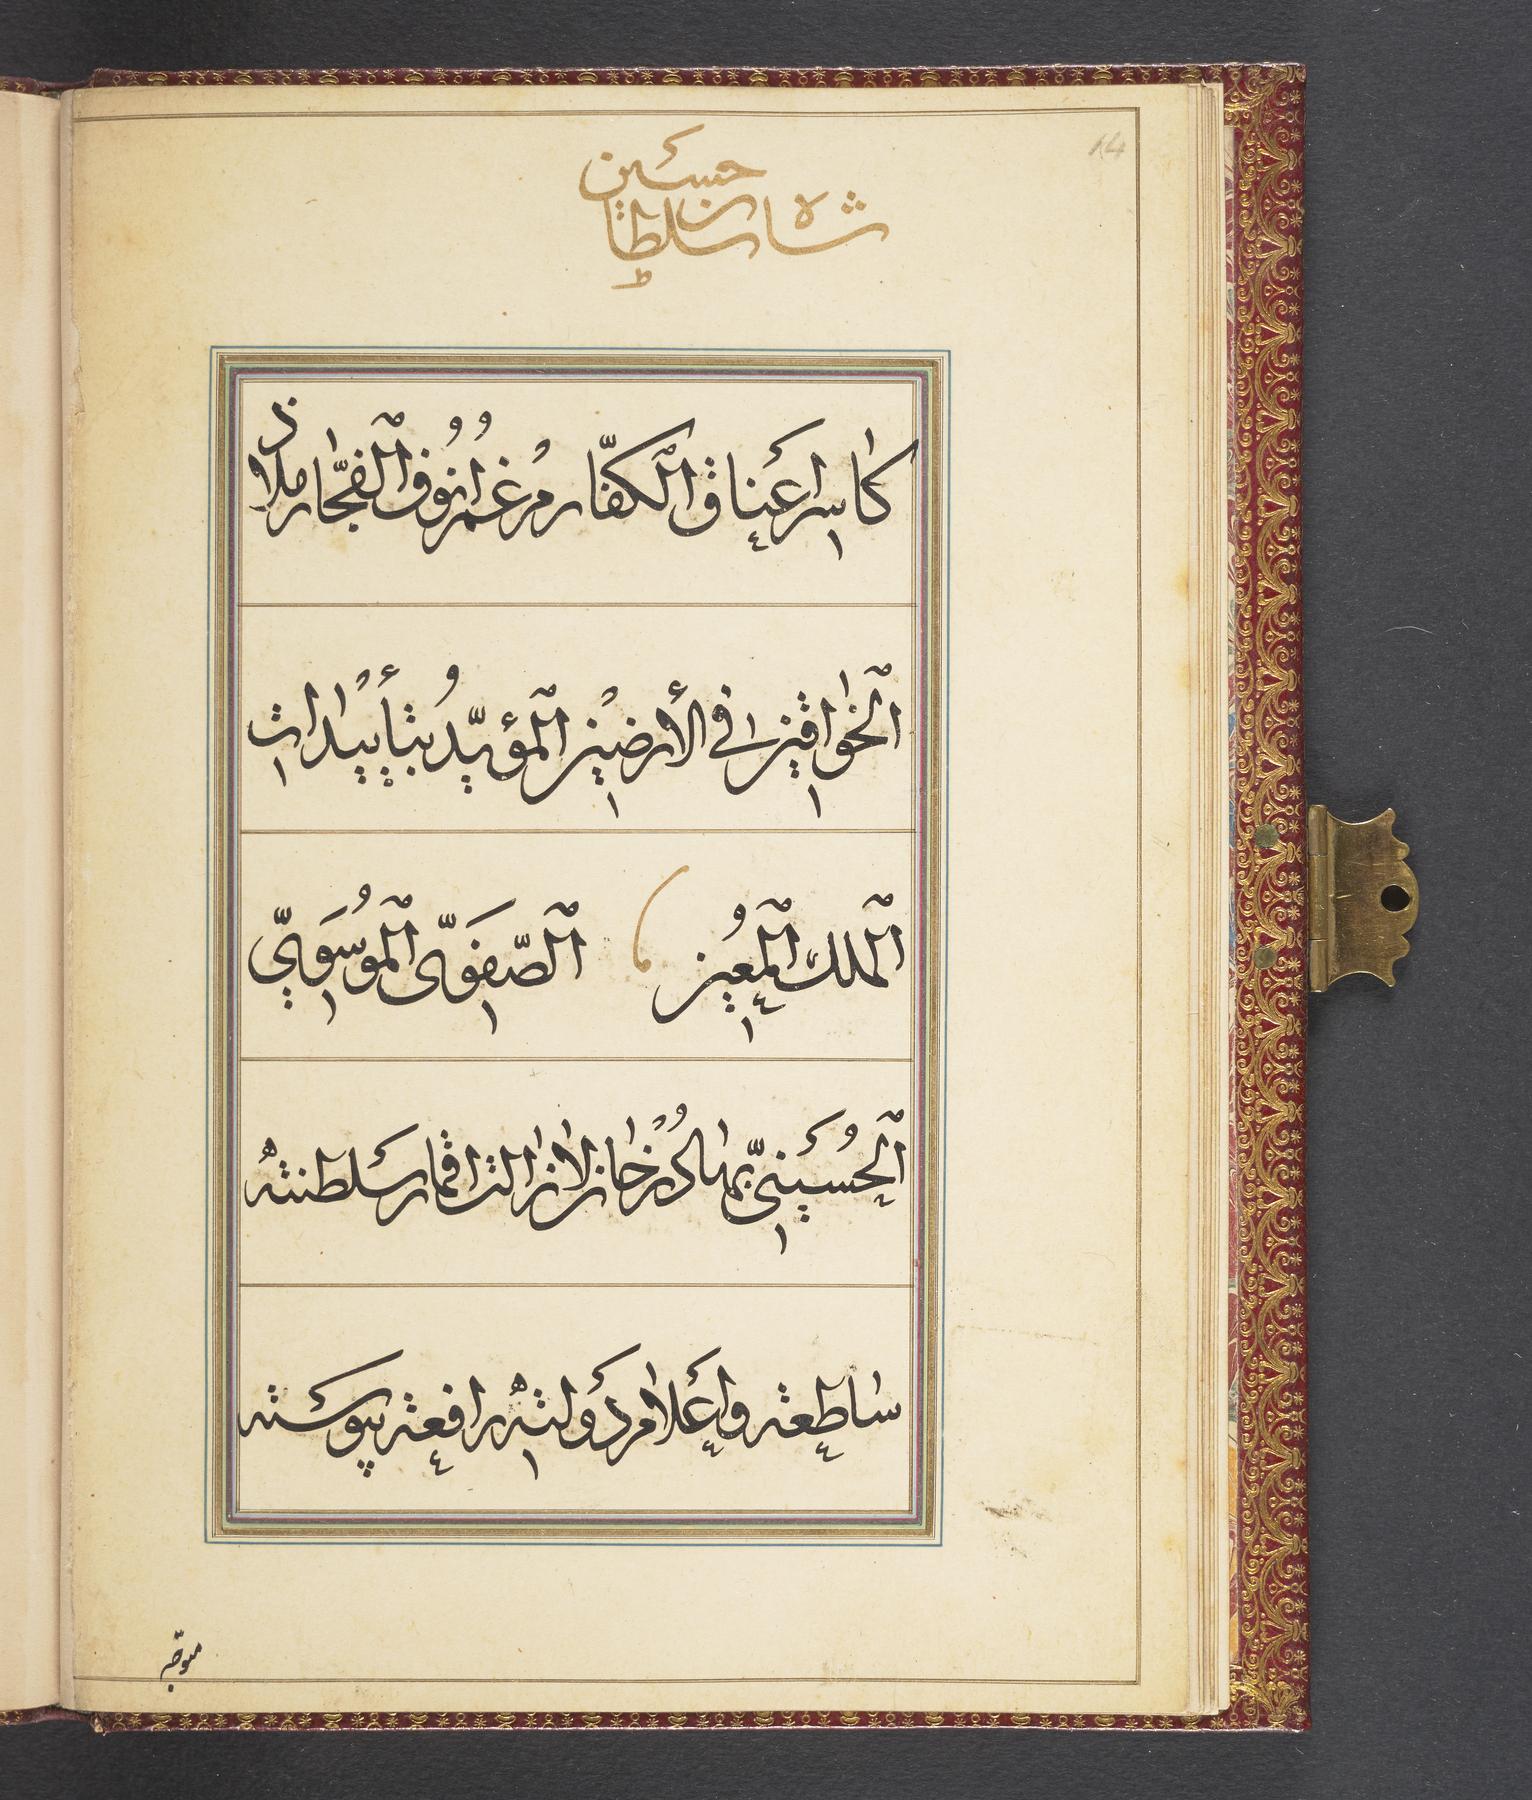 14
شاه سلطان
حسین
کاسر اعناق الکفّار مرغم انوف الفجّار ملاذ
الخواقین فی الأرضین المؤیّد بتأییدات
الملک المعین الصّفویّ الموسویّ
الحسینیّ بهادر خان لازالت اقمار سلطنته
ساطعة و اعلام دولته رافعة پیوسته
متوجّه